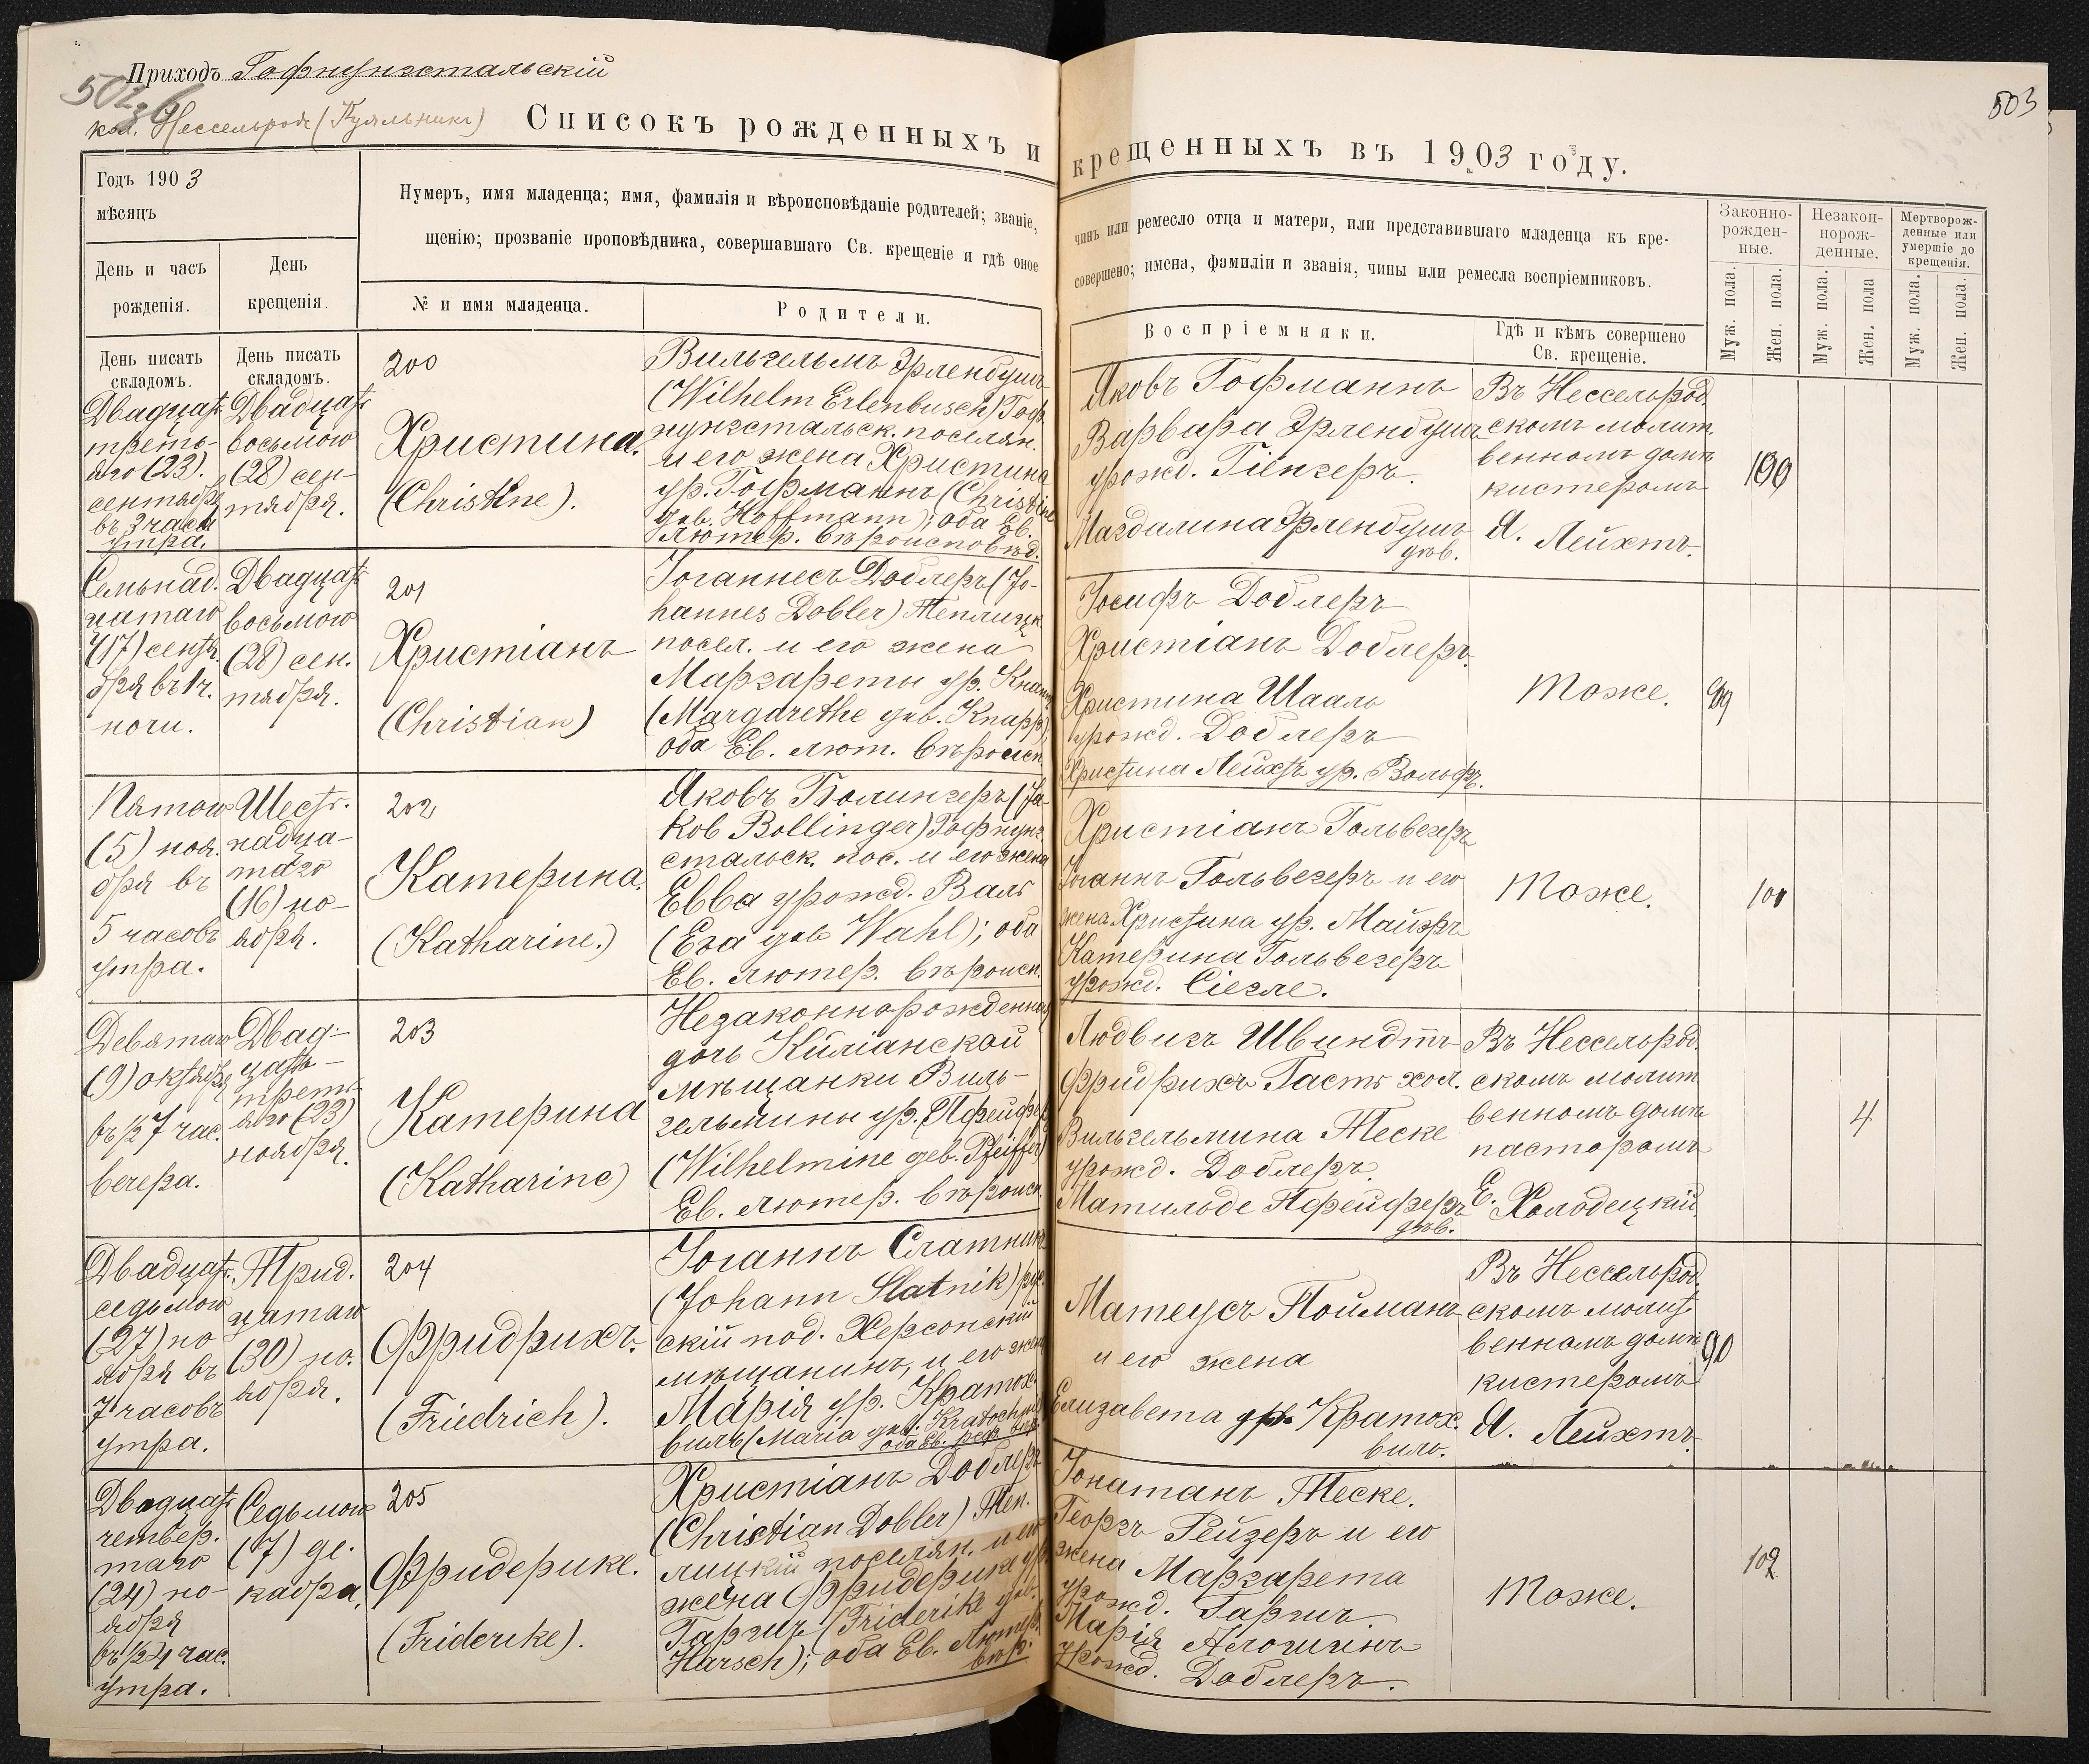 Приходъ Гофнунгстальскій
кол. Нессельроде (Куяльникъ)
503
Списокъ рожденныхъ и крещенныхъ въ 1903 году.
Годъ 1903
мѣсяцъ
День и часъ
рожденія.
День
крещенія
Нумеръ, имя младенца; имя, фамилія и вѣроисповѣданіе родителей; званіе,
чинъ или ремесло отца и матери, или представившаго младенца къ кре-
щенію; прозваніе проповѣдника, совершавшаго Св. крещеніе и гдѣ оное
совершено; имена, фамиліи и званія, чины или ремесла воспріемниковъ.
№ и имя младенца.
Родители.
Воспріемники.
Гдѣ и кѣмъ совершено
Св. крещеніе.
Законно-
рожден-
ные.
Незакон-
норож-
денные.
Мертворож-
денные или
умершіе до
крещенія.
Муж. пола.
Жен. пола.
Муж. пола.
Жен. пола
Муж. пола.
Жен. пола.
День писать
складомъ.
День писать
складомъ.
Двадцать
треть-
яго (23).
сентября
въ 3 часа
утра.
Двадцать
восьмого
(28) сен-
тября.
200
Христина.
(Christine).
Вильгельмъ Эрленбушъ
(Wilhelm Erlenbusch) Гоф-
нунгстальск. поселян.
и его жена Христина
ур. Гофманнъ (Christine
geb. Hoffmann); оба Ев.
Лютер. вѣроисповѣд.
Яковъ Гофманнъ
Варвара Эрленбушъ
урожд.
Магдалина Эрленбушъ
дѣв.
Въ Нессельрод.
скомъ молит.
венномъ домѣ
кистеромъ
Я. Лейхтъ.
Семнад.
цатаго
(17) сентя.
бря въ 1 ч.
ночи.
Двадцать
восьмого
(28) сен.
тября.
201
Христіанъ
(Christian)
Іоганнесъ Доблеръ (Jo-
hannes Dobler) Теплицк.
посел. и его жена
Маргареты ур. Кнаппъ
(Margarethe geb. Knapp);
оба Ев. лют. вѣроисп.
Іосифъ Доблеръ
Христіанъ Доблеръ.
Христина Шааль
урожд. Доблеръ
Христина Лейхтъ ур. Вольфъ.
Тоже.
Пятого
(5) ноя.
бря въ
5 часовъ
утра.
Шест.
надца-
таго
(16) но-
ября.
202
Катерина.
(Katharine.)
Яковъ Болингеръ (Ja-
kob Bollinger) Гофнунг.
стальск. пос. и его жена
Евва урожд. Валь
(Eva geb Wahl); оба
Ев. лютер. вѣроисп.
Христіанъ Гольвегеръ
Іоганнъ Гольвегеръ и его
жена Христина ур. Майеръ
Катерина Гольвегеръ
урожд. Сіегле.
Тоже.
101
Девятаго
(9) октября
въ ½7 час.
вечера.
Двад-
цать-
треть-
яго (23)
ноября.
203
Катерина
(Katharine)
Незаконнорожденная
дочь Киліанской
мѣщанки Виль-
гельмины ур. Пфейферъ
(Wilhelmine geb. Pfeiffer)
Ев. лютер. вѣроисп.
Людвигъ Швиндтъ
Фридрихъ Гастъ хол.
Вильгельмина Теске
урожд. Доблеръ
Матильде Пфейферъ
дѣв.
Въ Нессельрод.
скомъ молит
венномъ домѣ
пасторомъ
Е. Холодецкій.
4
Двадцать.
седьмого
(27) но
ября въ
7 часовъ
утра.
Трид.
цатаго
(30) но.
ября.
204
Фридрихъ.
(Friedrich).
Іоганнъ Слатникъ
(Johann Slatnik) рус.
скій под. Херсонскій
мѣщанинъ, и его жена
Марія ур. Кратох.
виль (Maria geb. Kratochwil
оба Ев. реф. вѣр.
Матеусъ Пойманъ
и его жена
Елизавета ур. Кратох.
виль.
Въ Нессельрод.
скомъ молит
венномъ домѣ
кистеромъ
Я. Лейхтъ.
Двадцать
четвер.
таго
(24) но-
ября
въ ½4 час.
утра.
Седьмого
(7) де.
кабря.
205
Фридерике.
(Friderike).
Христіанъ Доблеръ
(Christian Dobler) Теп.
лицкій поселян. и его
жена Фридерике ур.
Гаршъ (Friderike geb.
Harsch); оба Ев. Лютер.
вѣр.
Іонатанъ Теске.
Георгъ Рейзеръ и его
жена Маргарета
урожд. Гаршъ
Марія
урожд. Доблеръ.
Тоже.
102